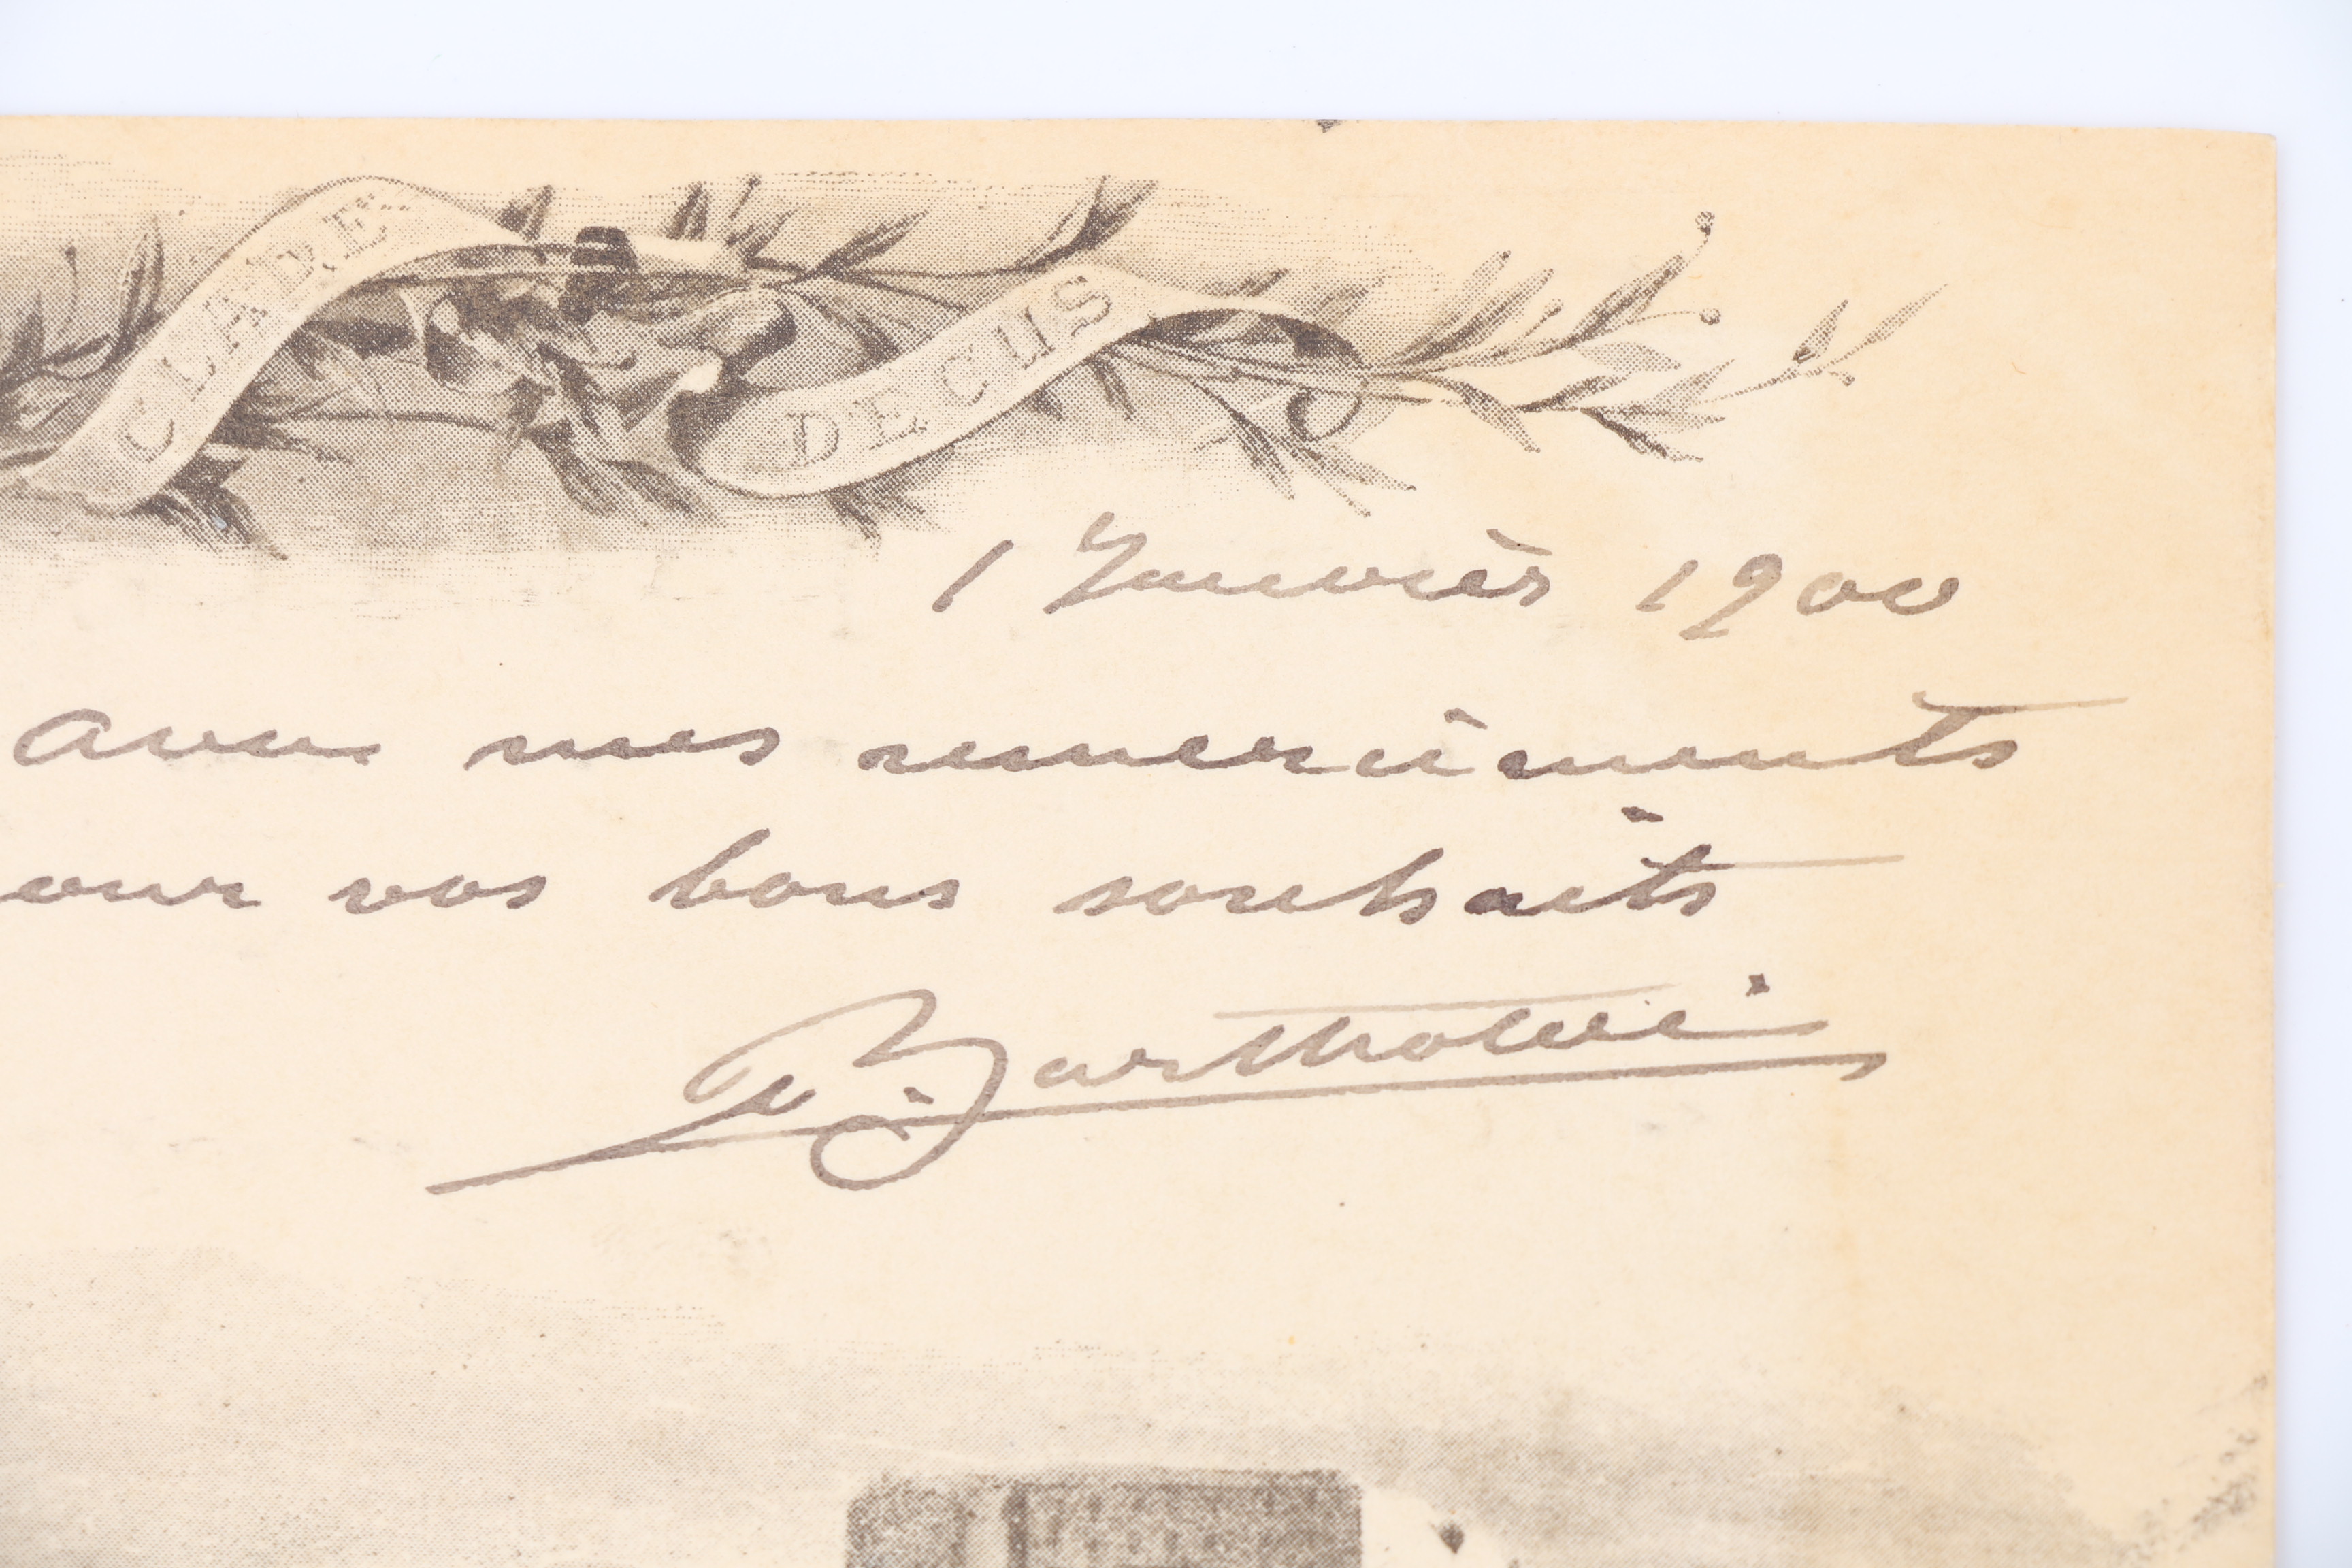 CLADE
DECUS
1 Janvier 1900
Avec mes remerciements
our vos bons souhaits
Bartholdi